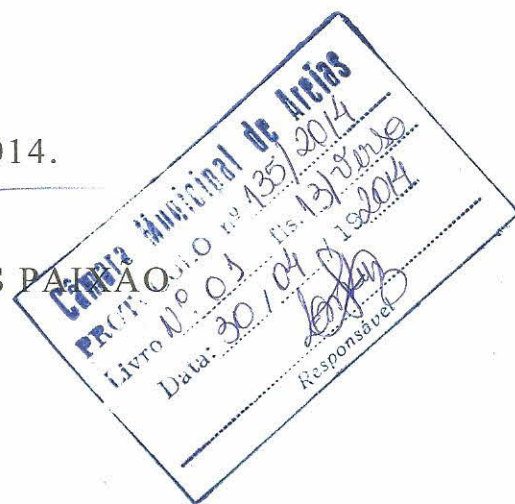 014.
S PAIXÃO
Câmara Municipal de Areias
PROTOCOLO nº 135/2014
Livro Nº 01 fls. 13/Verso
Data: 30/04/192014
Responsável